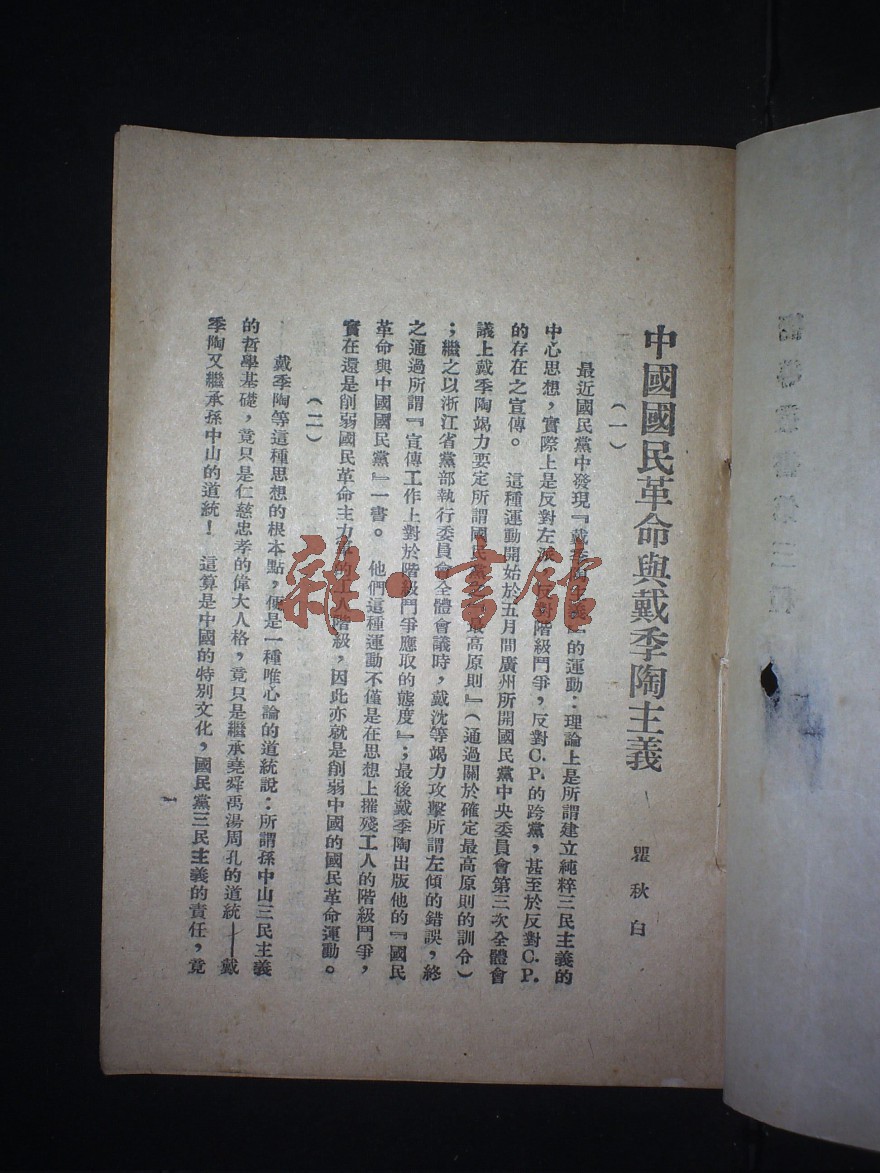 中國國民革命與戴季陶主義
瞿秋白
(一)
最近國民黨中發現『戴季陶主義』的運動：理論上是所謂建立純粹三民主義的
中心思想，實際上是反對左派，反對階級鬥爭，反對C.P.的跨黨，甚至於反對C.P.
的存在之宣傳。 這種運動開始於五月間廣州所開國民黨中央委員會第三次全體會
議上戴季陶竭力要定所謂國民黨之『最高原則』(通過關於確定最高原則的訓令)
；繼之以浙江省黨部執行委員會全體會議時，戴沈等竭力攻擊所謂左傾的錯誤，終
之通過所謂『宣傳工作上對於階級鬥爭應取的態度』；最後戴季陶出版他的『國民
革命與中國國民黨』一書。 他們這種運動不僅是在思想上摧殘工人的階級鬥爭，
實在還是削弱國民革命主力軍的工人階級，因此亦就是削弱中國的國民革命運動。
(二)
戴季陶等這種思想的根本點，便是一種唯心論的道統說：所謂孫中山三民主義
的哲學基礎，竟只是仁慈忠孝的偉大人格，竟只是繼承堯舜禹湯周孔的道統——戴
季陶又繼承孫中山的道統！ 這算是中國的特別文化，國民黨三民主義的責任，竟
一
雜·書館